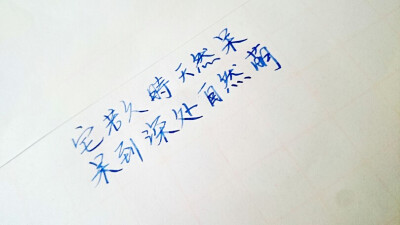 宅若久時天然呆
呆到深处自然萌